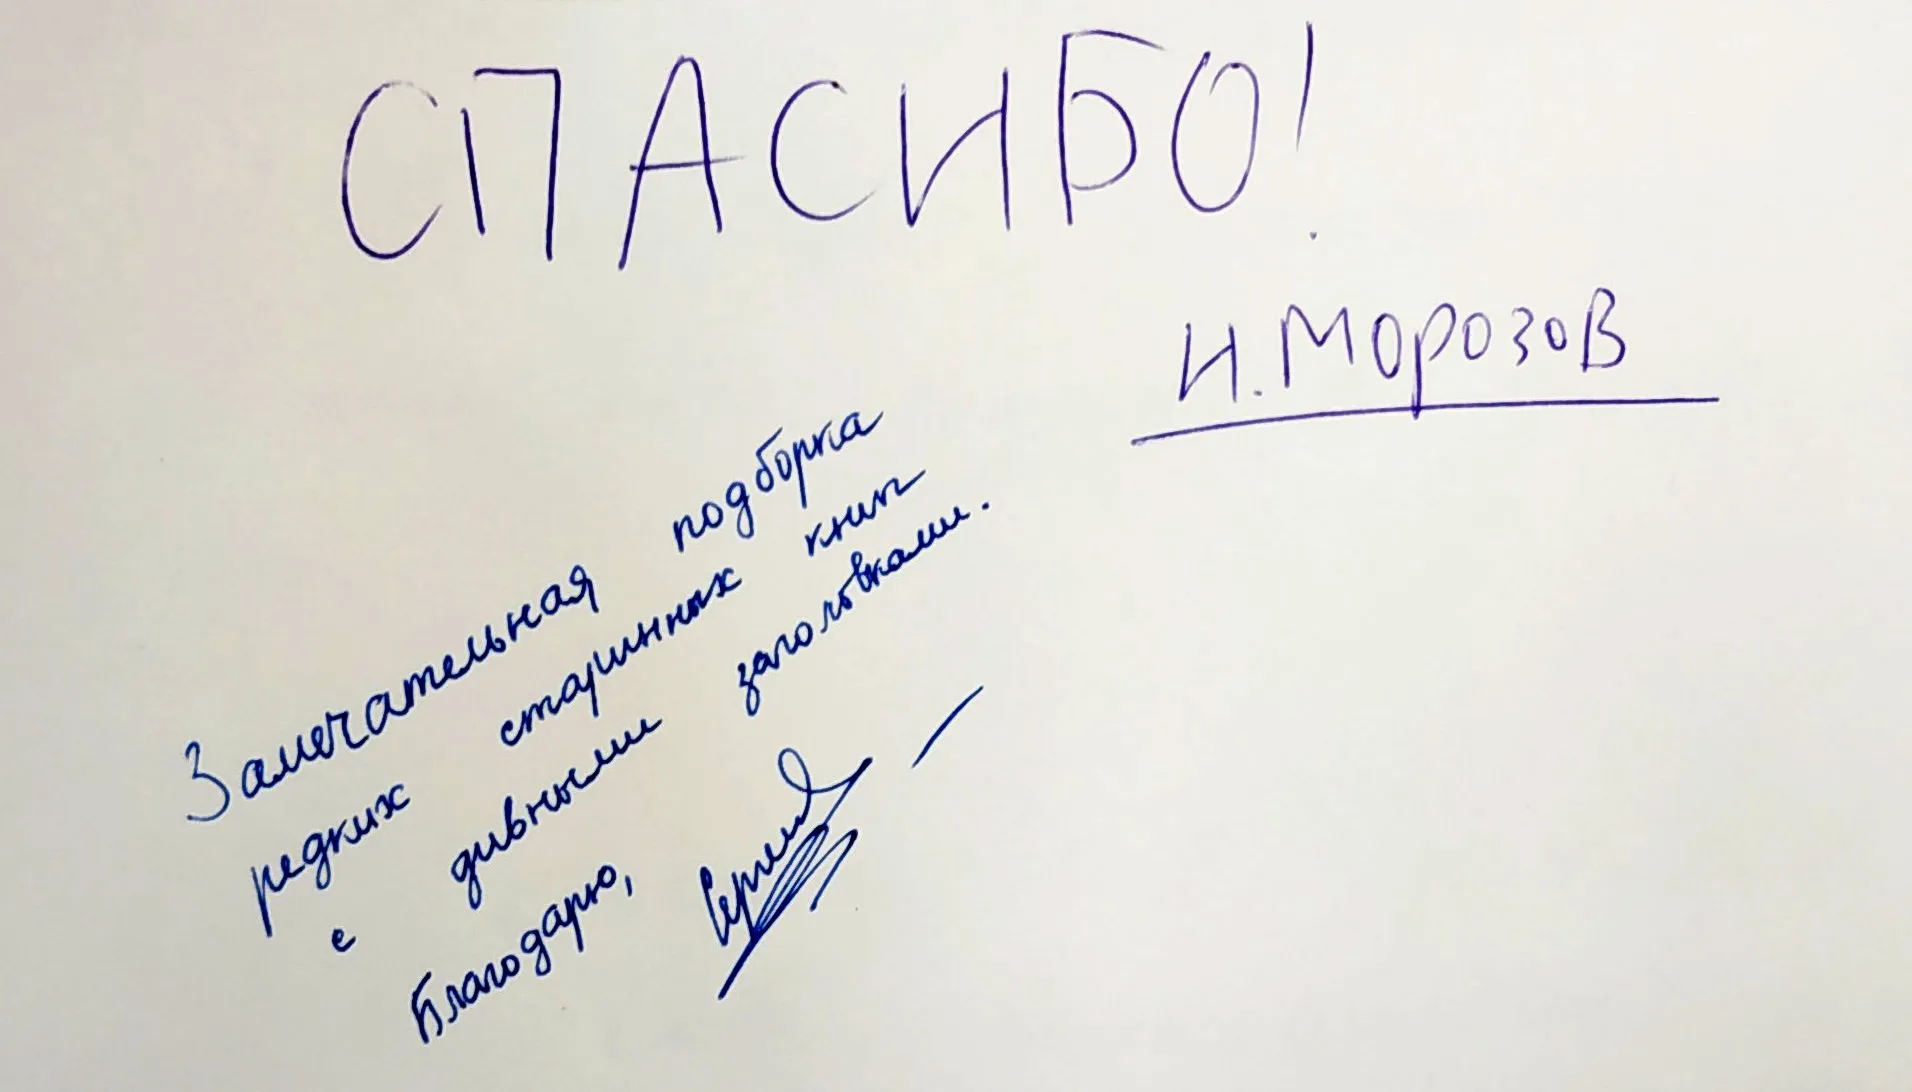 СПАСИБО!
И. МОРОЗОВ
Замечательная подборка
редких старинных книг
с дивными заголовками.
Благодарю,